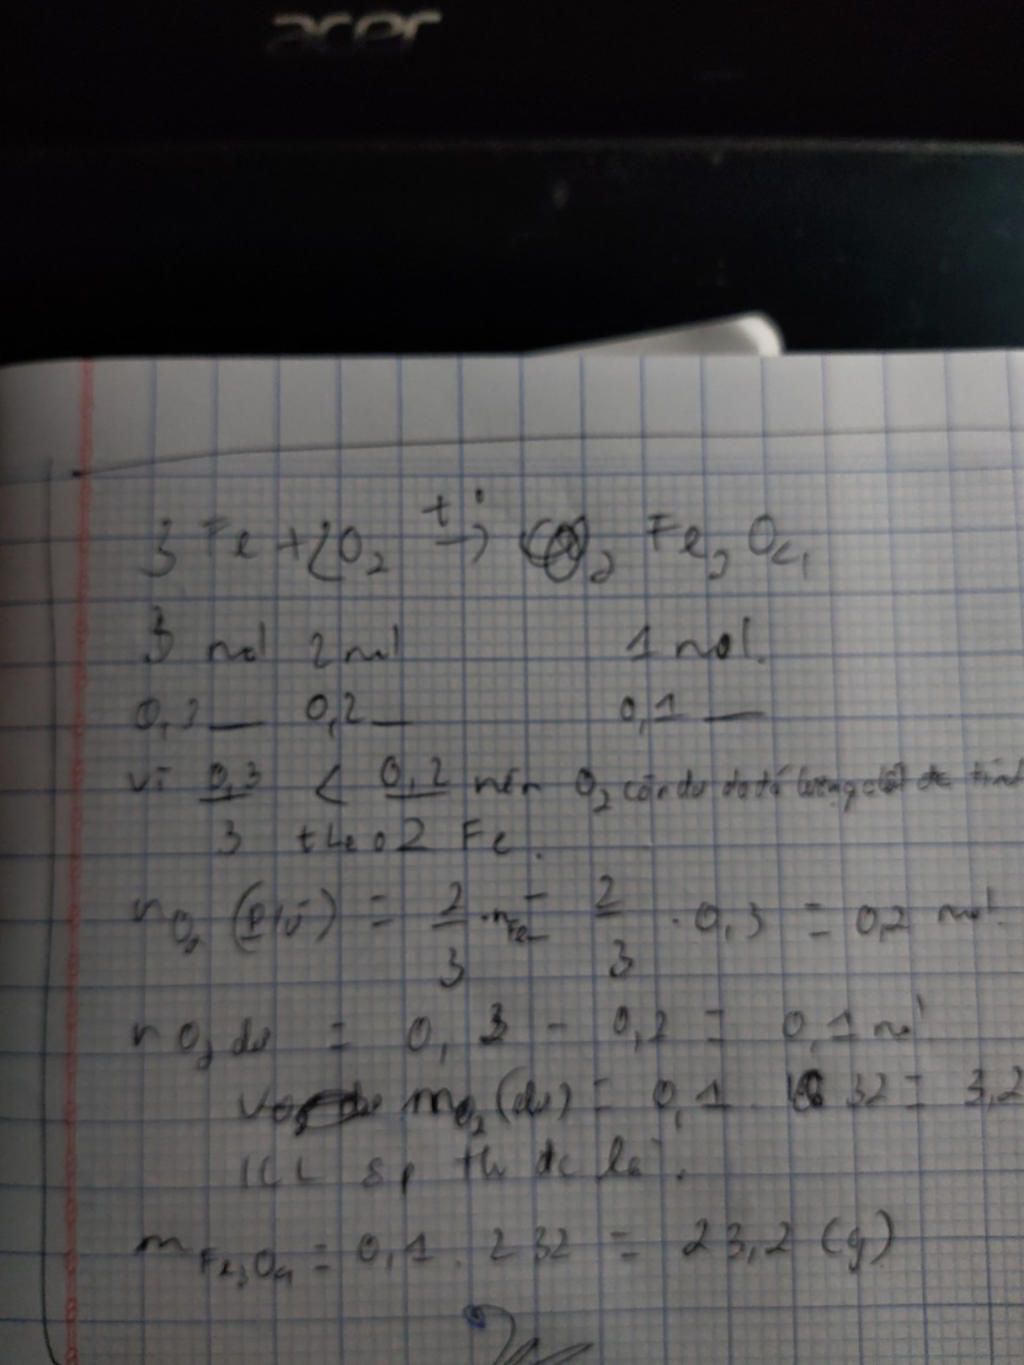 acer
3 Fe + 2O2 t° → Fe3O4
3 mol 2 mol 1 mol.
0,3 — 0,2 — 0,1 —
vì 0,3/3 < 0,2/2 nên O2 còn dư do đó lượng chất đc tính
theo Fe.
nO2 (pứ) = 2/3 . nFe = 2/3 . 0,3 = 0,2 mol.
nO2 dư = 0,3 - 0,2 = 0,1 mol
mO2 (dư) = 0,1 . 32 = 3,2
KL sp thu đc là:
mFe3O4 = 0,1 . 232 = 23,2 (g)